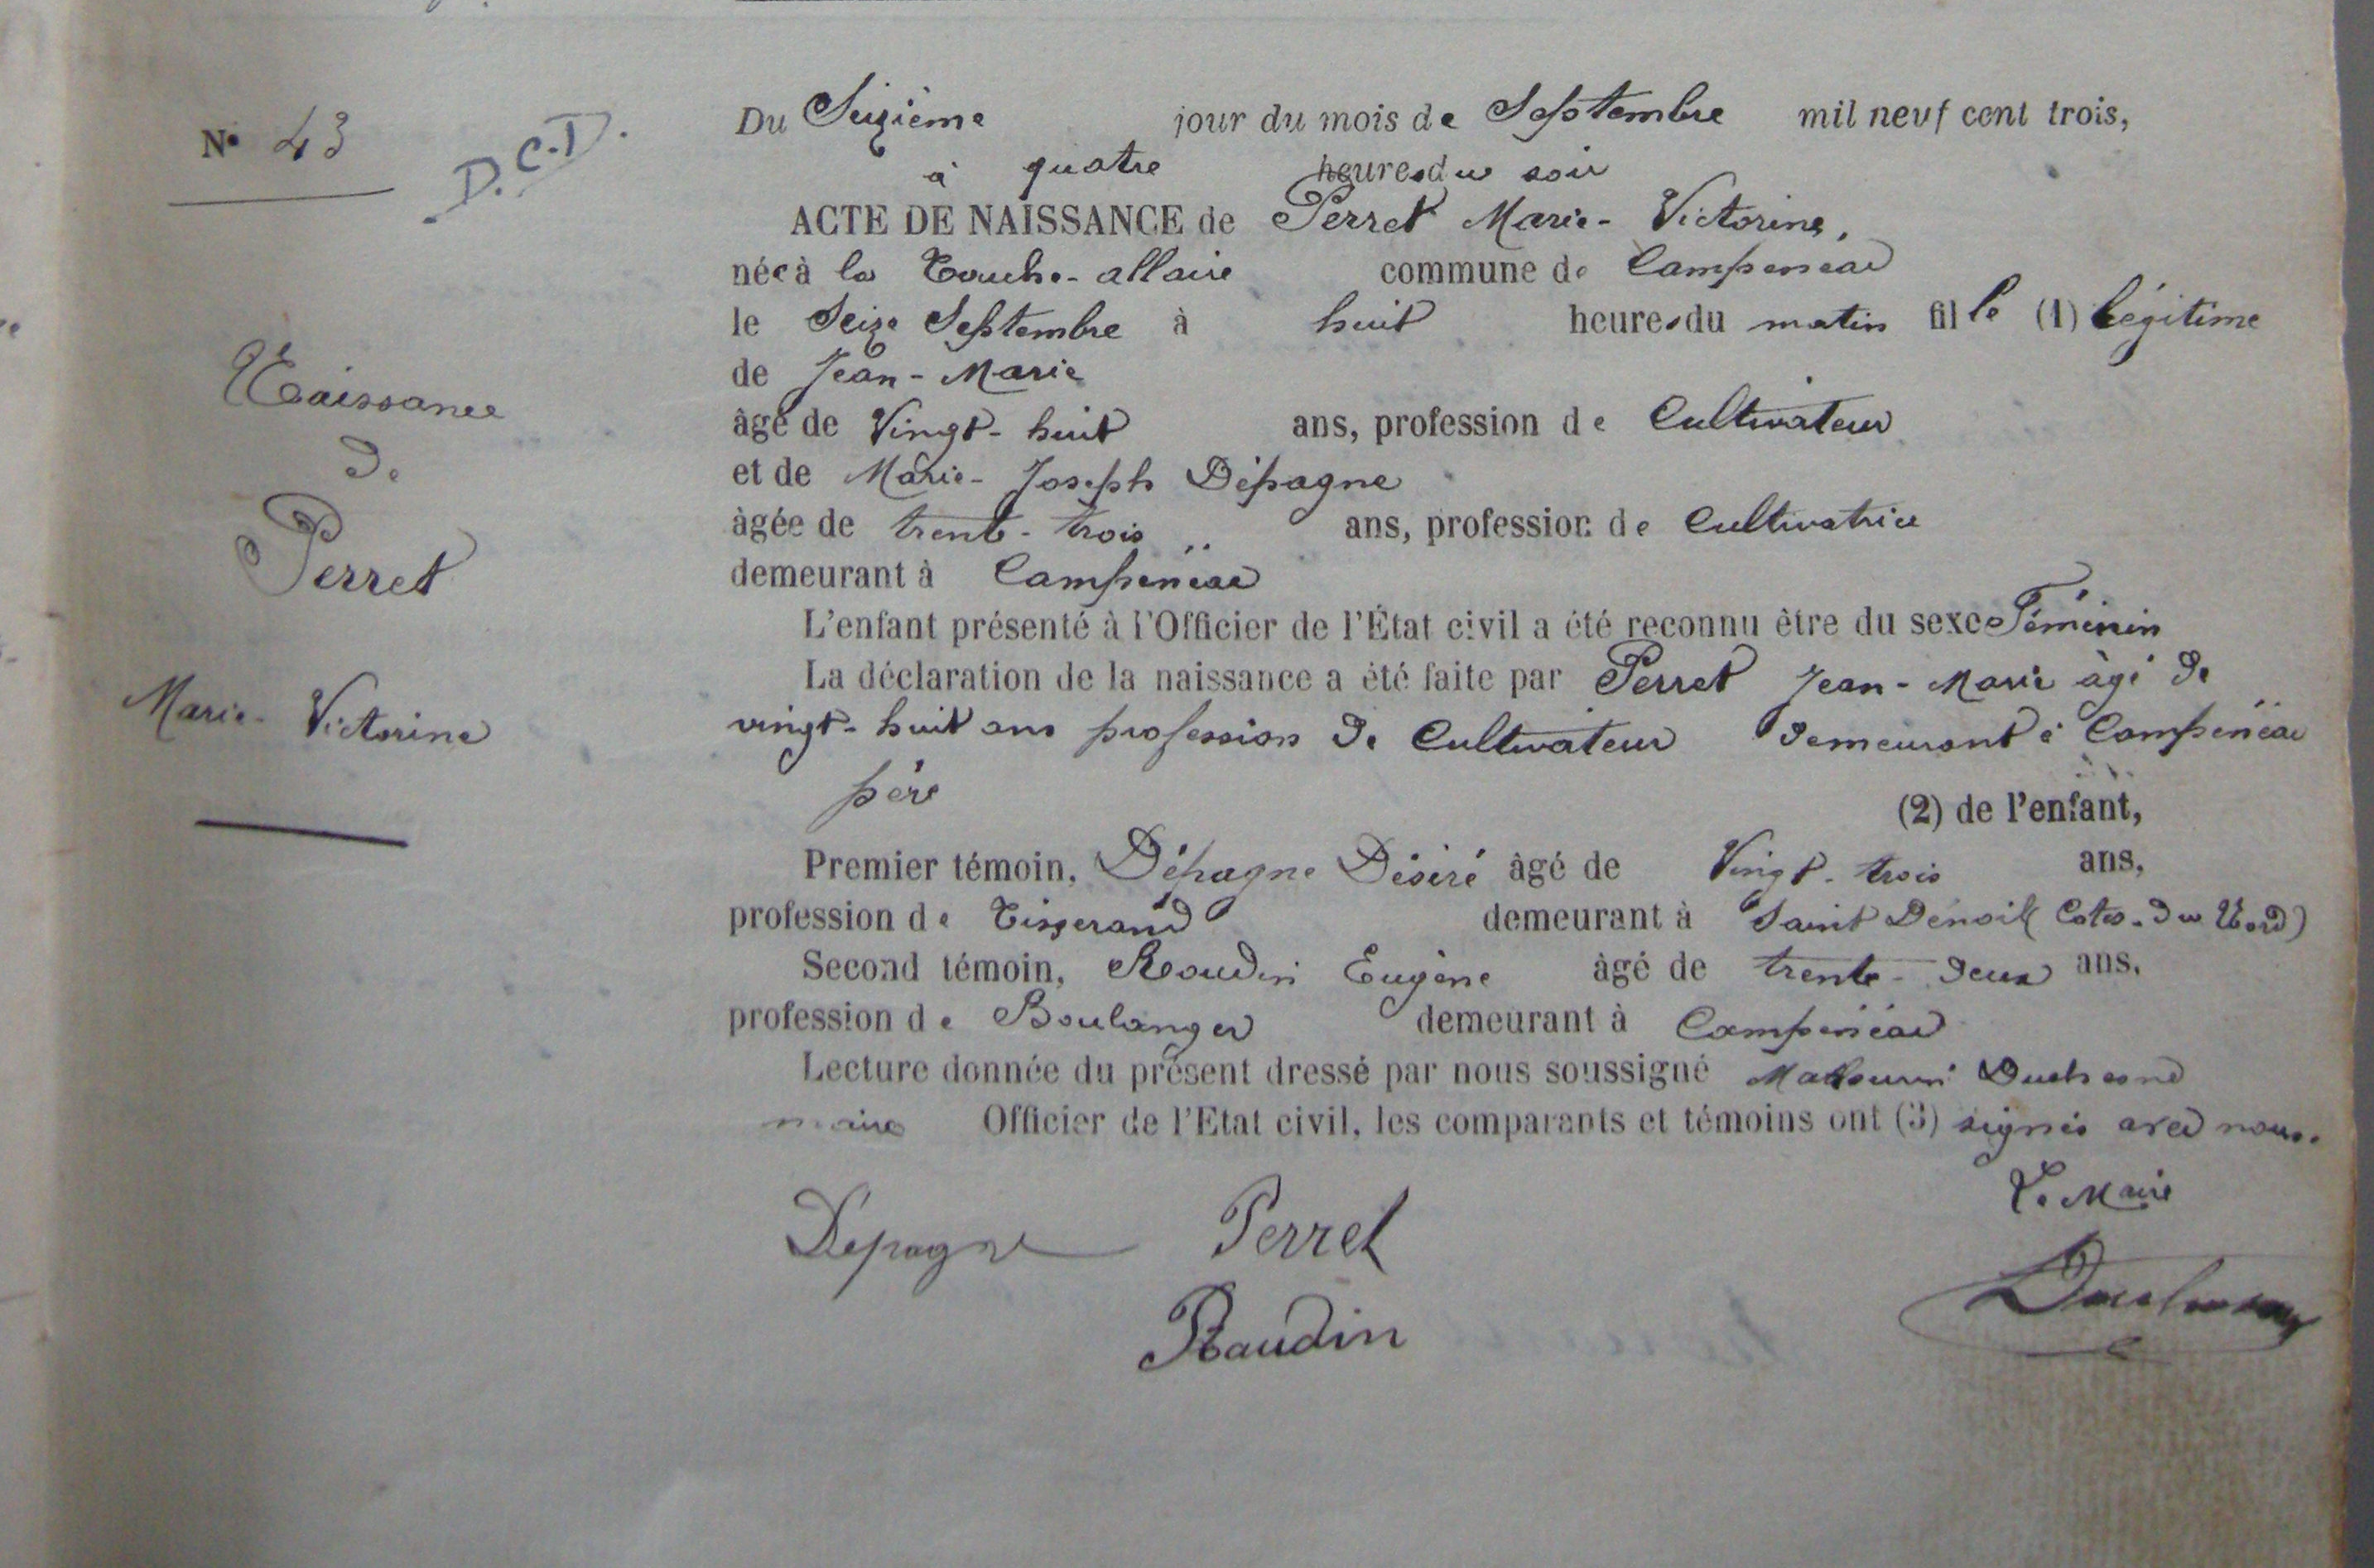 N° 43
D.C.D.
Naissance
de
Perret
Marie-Victorine
Du Seizième jour du mois de Septembre mil neuf cent trois,
à quatre heures du soir
ACTE DE NAISSANCE de Perret Marie-Victorine,
née à la Touche-allaire commune de Campénéac
le Seize Septembre à huit heures du matin fille (1) légitime
de Jean-Marie
âgé de Vingt-huit ans, profession de Cultivateur
et de Marie-Joseph Dépagne
âgée de trente-trois ans, profession de Cultivatrice
demeurant à Campénéac
L'enfant présenté à l'Officier de l'État civil a été reconnu être du sexe Féminin
La déclaration de la naissance a été faite par Perret Jean-Marie âgé de
vingt-huit ans profession de Cultivateur demeurant à Campénéac
père
(2) de l'enfant,
Premier témoin, Dépagne Désiré âgé de Vingt-trois ans,
profession de Tisserand demeurant à Saint Dénoil (Cotes-du Nord)
Second témoin, Raudin Eugène âgé de trente-deux ans,
profession de Boulanger demeurant à Campénéac
Lecture donnée du présent dressé par nous soussigné Mathurin Duchesne
maire Officier de l'Etat civil, les comparants et témoins ont (3) signés avec nous.
Le Maire
Dépagne Perret
Raudin